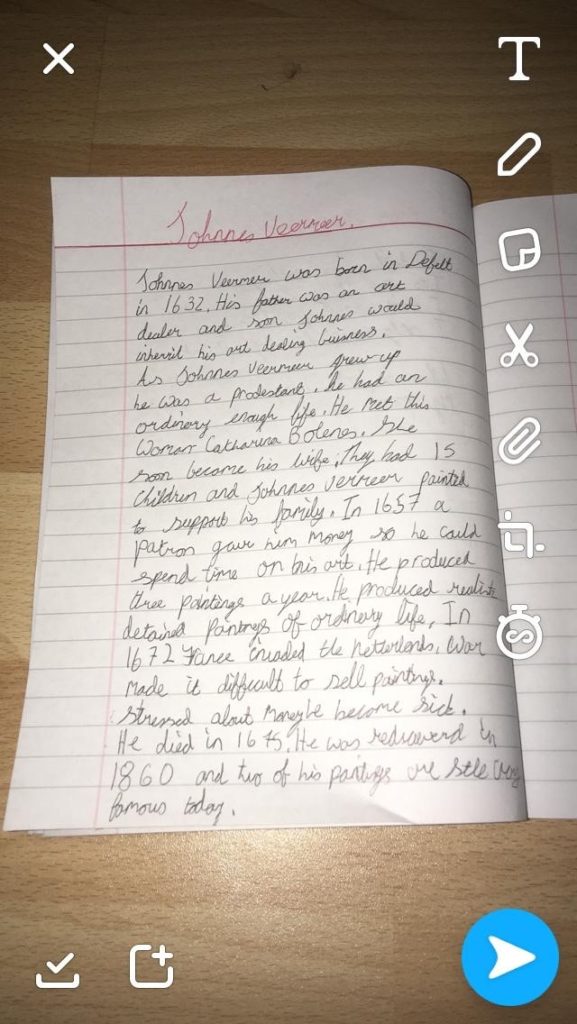 T
Johnnes Veermeer.
Johnnes Veermer was born in Defelt
in 1632. His father was an art
dealer and soon Johnnes would
inherit his art dealing buisness.
As Johnnes Veermeer grew up
he was a prodestant. he had an
ordinary enough life. He met this
Woman Catharina Bolenes. She
soon become his wife. They had 15
children and Johnnes Vermeer painted
to support his family. In 1657 a
patron gave him money so he could
spend time on his art. He produced
three paintings a year. He produced
detailed paintings of ordinary life, In
1672 France invaded the netherlands. War
made it difficult to sell paintings.
Stressed about money he become sick.
He died in 1675. He was rediscovered in
1860 and two of his paintings are
famous today.